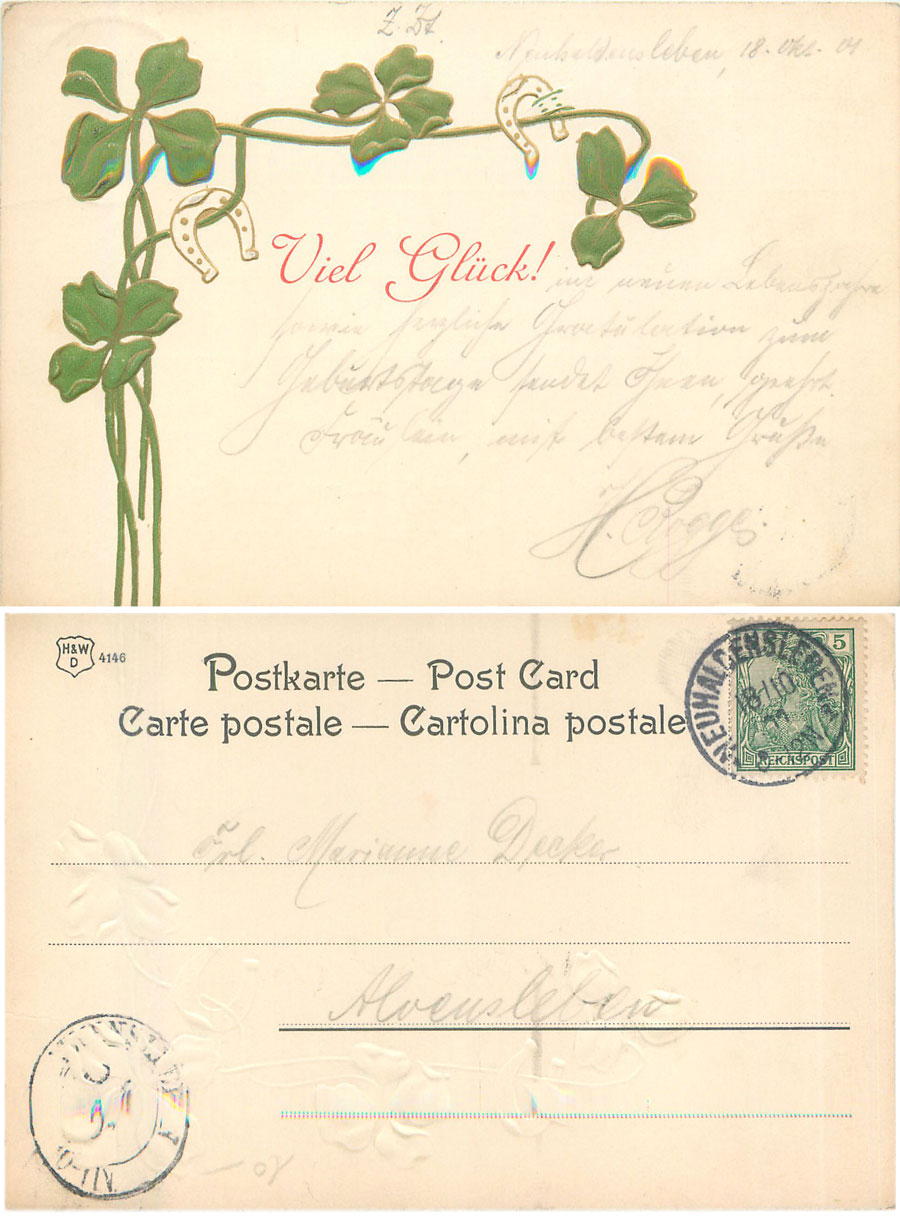 Z. Zt.
Neuhaldensleben, 18. Okt. 01
Viel Glück!
im neuen Lebensjahre
sowie herzliche Gratulation zum
Geburtstage sendet Ihnen, geehrt.
Fräulein, mit bestem Gruße
H. Rogge.
H&W
D
4146
Postkarte — Post Card
Carte postale — Cartolina postale
NEUHALDENSLEBEN
18/10
5
REICHSPOST
Frl. Marianne Decker
Alvensleben